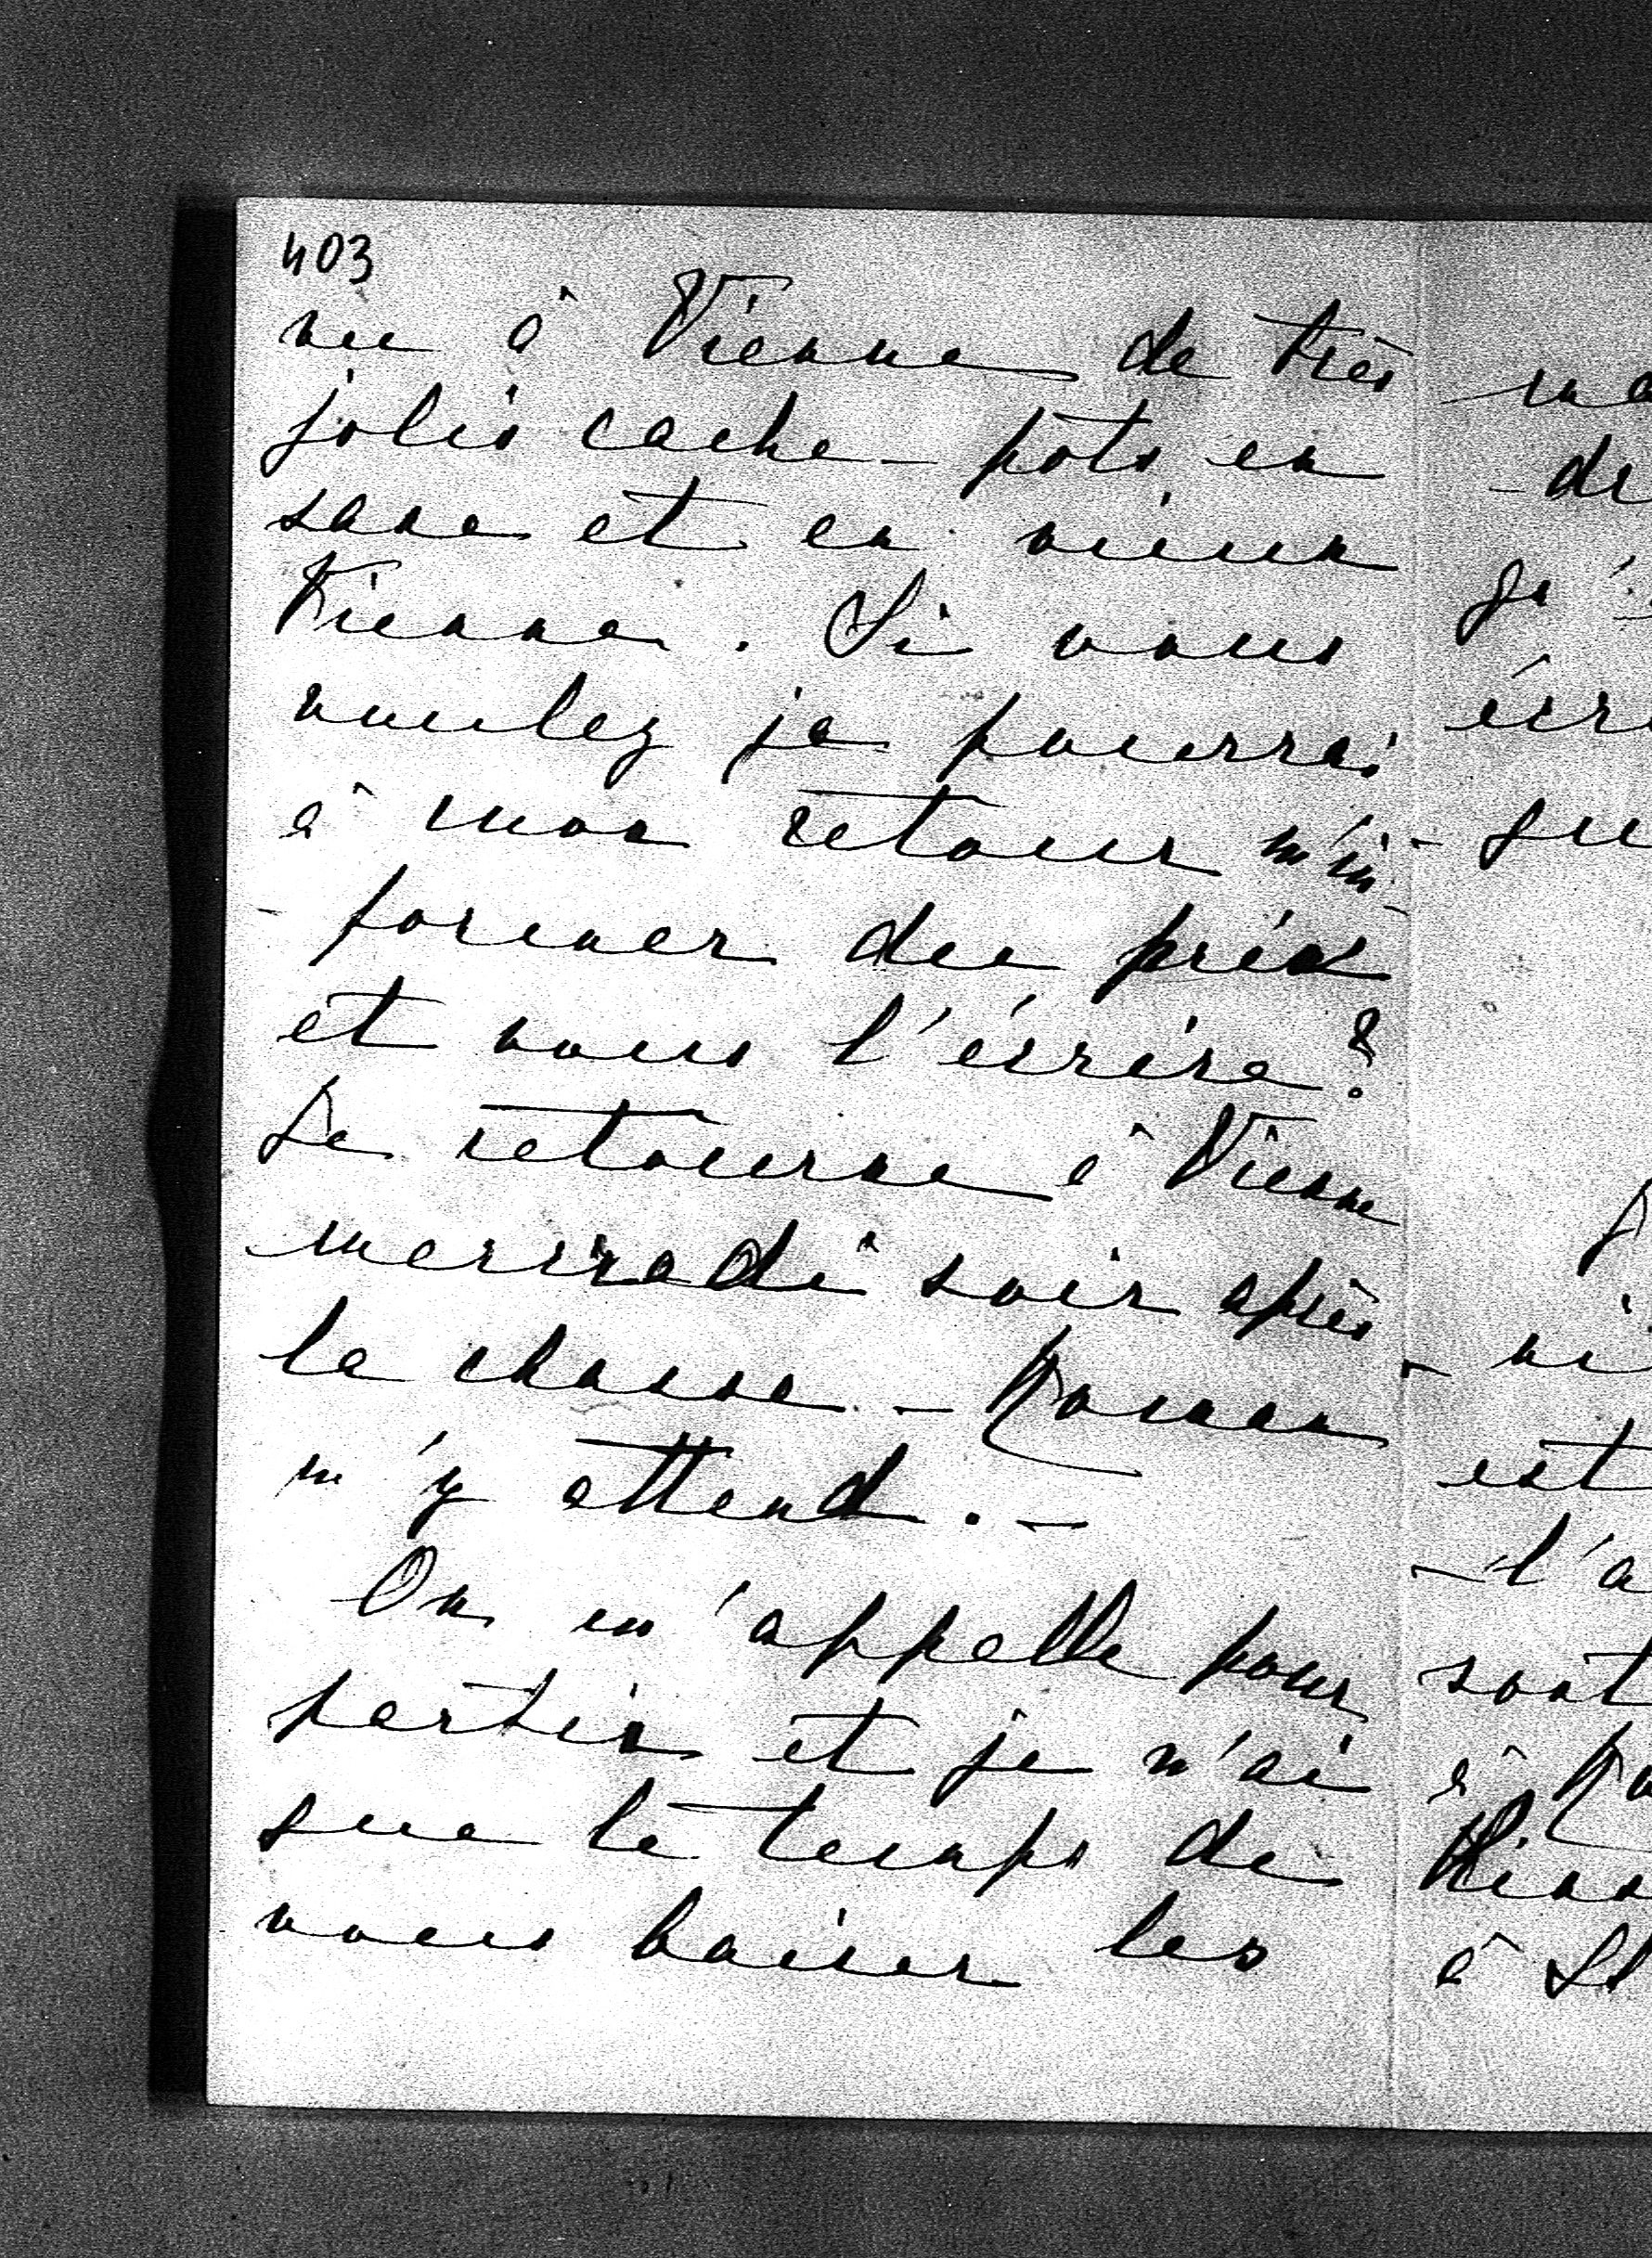 403
vu à Vienne de très
jolis cache-pots en
saxe et en vieux
Vienne. Si vous
voulez je pourrai
à mon retour m'in-
-former du prix
et vous l'écrire?
Je retourne à Vienne
mercredi soir après
la chasse - Roman
m'y attend. -
On m'appelle pour
partir et je n'ai
que le temps de
vous baiser les
écri
que
est
- l'a
sont